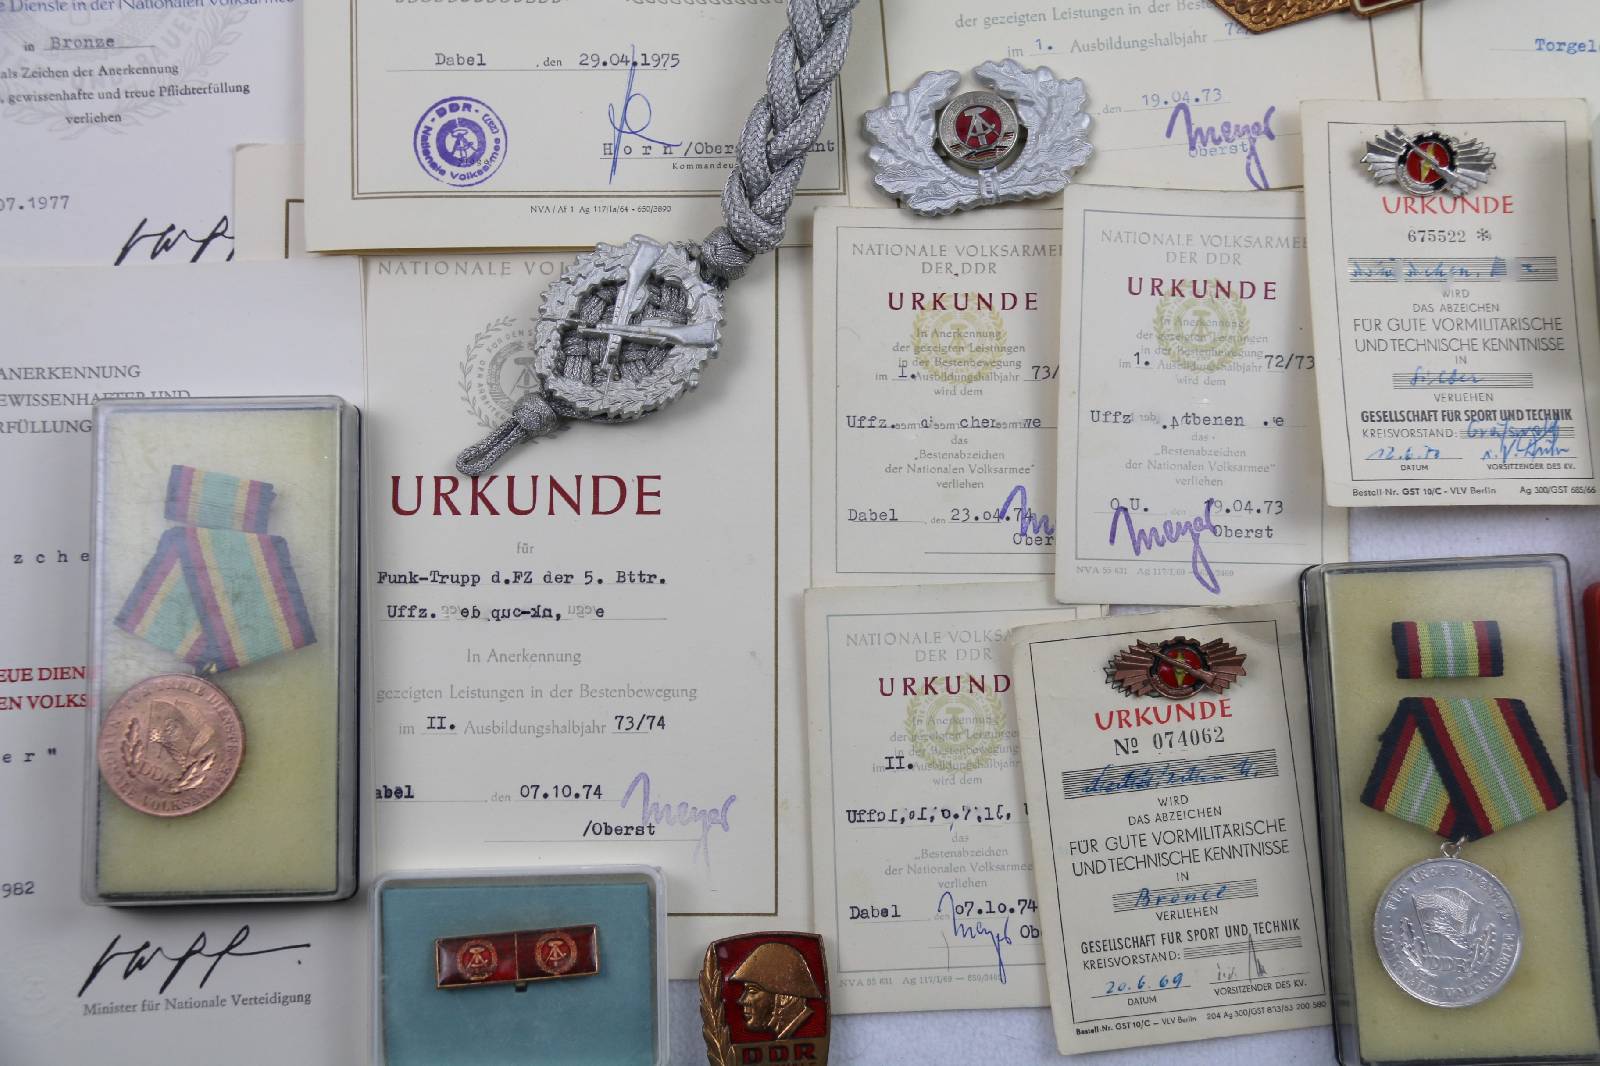 e Dienste in der Nationalen Volksarmee
in Bronze
als Zeichen der Anerkennung
, gewissenhafte und treue Pflichterfüllung
verliehen
07.1977
Dabel , den 29.04.1975
DDR
Nationale Volksarmee
Horn/Oberst
Kommandeu
NVA / Af 1 Ag 117/Ia/64 - 650/3890
der gezeigten Leistungen in der Besten
im 1. Ausbildungshalbjahr 72/
, den 19.04.73
Meyer
Oberst
Torgel
ANERKENNUNG
EWISSENHAFTER UND
RFÜLLUNG
z s c h e
EUE DIEN
EN VOLKS
e r "
982
Minister für Nationale Verteidigung
FÜR TREUE DIENSTE
NATIONALE VOLKSARMEE
DDR
NATIONALE VOL
URKUNDE
für
Funk-Trupp d.FZ der 5. Bttr.
Uffz.
In Anerkennung
gezeigten Leistungen in der Bestenbewegung
im II. Ausbildungshalbjahr 73/74
abel , den 07.10.74
Meyer
/Oberst
DDR
NATIONALE VOLKSARMEE
DER DDR
URKUNDE
In Anerkennung
der gezeigten Leistungen
in der Bestenbewegung
im I. Ausbildungshalbjahr 73/
wird dem
Uffz.
das
"Bestenabzeichen
der Nationalen Volksarmee"
verliehen
Dabel , den 23.04.74
Ober
NATIONALE VOLKSARMEE
DER DDR
URKUNDE
In Anerkennung
der gezeigten Leistungen
in der Bestenbewegung
im 1. Ausbildungshalbjahr 72/73
wird dem
Uffz
das
"Bestenabzeichen
der Nationalen Volksarmee"
verliehen
O.U. , den 19.04.73
Meyer
Oberst
NVA 55 631 Ag 117/I/69 3469
NATIONALE VOLKSA
DER DDR
URKUND
In Anerkennung
der gezeigten Leistungen
in der Bestenbewegung
im II. Ausbildungshalbjahr
wird dem
das
"Bestenabzeichen
der Nationalen Volksarmee"
verliehen
Dabel , den 07.10.74
Meyer
Ob
NVA 55 631 Ag 117/I/69
URKUNDE
675522 *
WIRD
DAS ABZEICHEN
FÜR GUTE VORMILITÄRISCHE
UND TECHNISCHE KENNTNISSE
IN
Silber
VERLIEHEN
GESELLSCHAFT FÜR SPORT UND TECHNIK
KREISVORSTAND: Greifswald
12.6.70
DATUM VORSITZENDER DES KV.
Bestell-Nr. GST 10/C - VLV Berlin Ag 300/GST 685/66
URKUNDE
No 074062
WIRD
DAS ABZEICHEN
FÜR GUTE VORMILITÄRISCHE
UND TECHNISCHE KENNTNISSE
IN
Bronce
VERLIEHEN
GESELLSCHAFT FÜR SPORT UND TECHNIK
KREISVORSTAND:
20.6.69
DATUM VORSITZENDER DES KV.
Bestell-Nr. GST 10/C - VLV Berlin 204 Ag 300/GST 853/63 200 580
FÜR TREUE DIENSTE
NATIONALE VOLKSARMEE
DDR